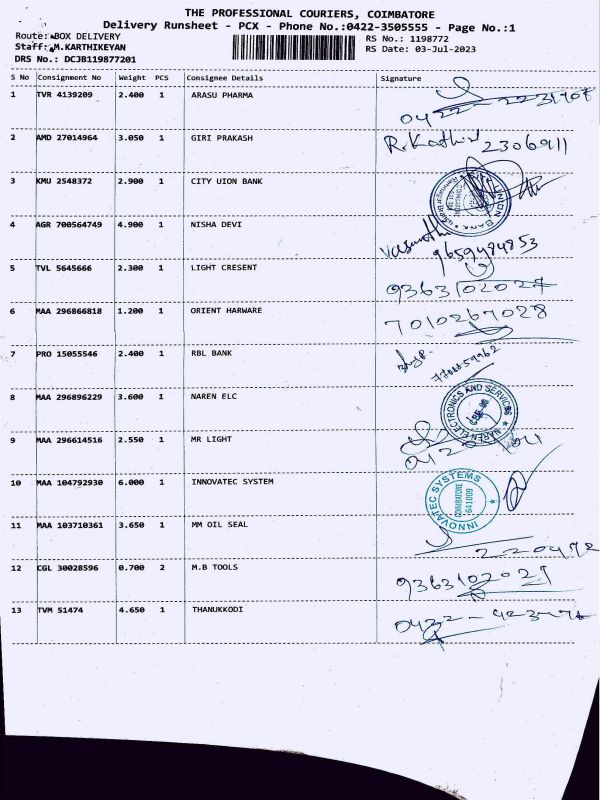 THE PROFESSIONAL COURIERS, COIMBATORE
Delivery Runsheet - PCX - Phone No.:0422-3505555 - Page No.:1
Route: BOX DELIVERY
RS No.: 1198772
Staff: M.KARTHIKEYAN
RS Date: 03-Jul-2023
DRS No.: DCJB119877201
S No Consignment No Weight PCS Consignee Details Signature
1 TVR 4139209 2.400 1 ARASU PHARMA
2 AMD 27014964 3.050 1 GIRI PRAKASH R.Kathir 2306911
3 KMU 2548372 2.900 1 CITY UION BANK
4 AGR 700564749 4.900 1 NISHA DEVI
9659484853
5 TVL 5645666 2.300 1 LIGHT CRESENT 9363102027
6 MAA 296866818 1.200 1 ORIENT HARWARE 7010267028
7 PRO 15055546 2.400 1 RBL BANK
8 MAA 296896229 3.600 1 NAREN ELC NAREN ELECTRONICS AND SERVICES
9 MAA 296614516 2.550 1 MR LIGHT
10 MAA 104792930 6.000 1 INNOVATEC SYSTEM INNOVATEC SYSTEMS COIMBATORE 641009
11 MAA 103710361 3.650 1 MM OIL SEAL
12 CGL 30028596 0.700 2 M.B TOOLS 9363102021
13 TVM 51474 4.650 1 THANUKKODI